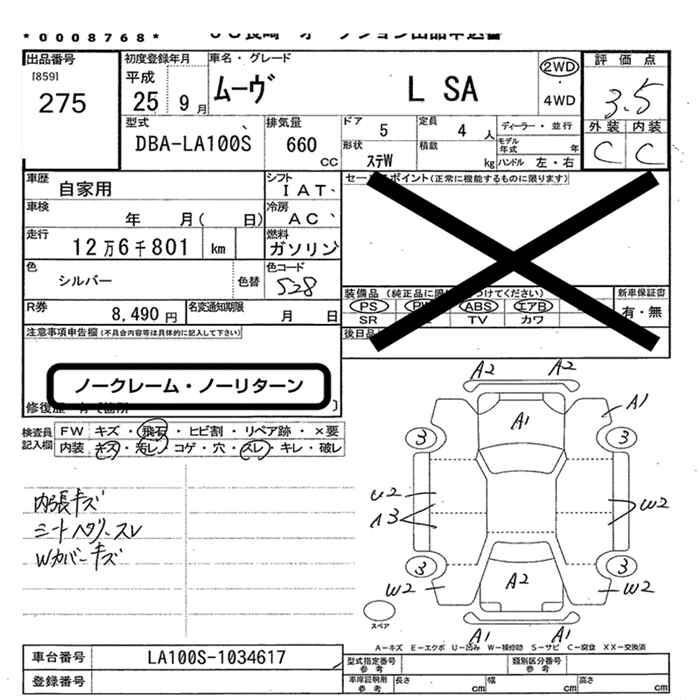 *0008768*
出品番号
[859]
275
初度登録年月
平成
25 9月
車名・グレード
ムーヴ L SA
2WD
・
4WD
評価点
3.5
外装 内装
C C
型式
DBA-LA100S
排気量
660
CC
ドア 5
定員 4 人
ディーラー・並行
形状 ステW
積載 kg
モデル年式 年
ハンドル 左・右
車歴 自家用
シフト IAT
車検 年 月( 日)
冷房 AC
走行 12万6千801 km
燃料 ガソリン
色 シルバー 色替
色コード S28
R券 8,490円
名変通知期限 月 日
注意事項申告欄(不具合内容等は具体的に記入して下さい)
ノークレーム・ノーリターン
セールスポイント(正常に機能するものに限ります)
新車保証書
有・無
PS ABS エアB
SR TV カワ
検査員記入欄
FW キズ・飛石・ヒビ割・リペア跡・×要
内装 キズ・汚レ・コゲ・穴・スレ・キレ・破レ
内張キズ
シートヘタリ、スレ
Wカバーキズ
A2 A2
A1 A1
3 3
U2
A3
W2
3 3
W2 A2 W2
A1 A1
スペア
A−キズ E−エクボ U−凹み W−補修跡 S−サビ C−腐食 XX−交換済
車台番号 LA100S-1034617
登録番号
型式指定番号 参考
類別区分番号 参考
車庫証明用 参考
長さ cm 幅 cm 高さ cm